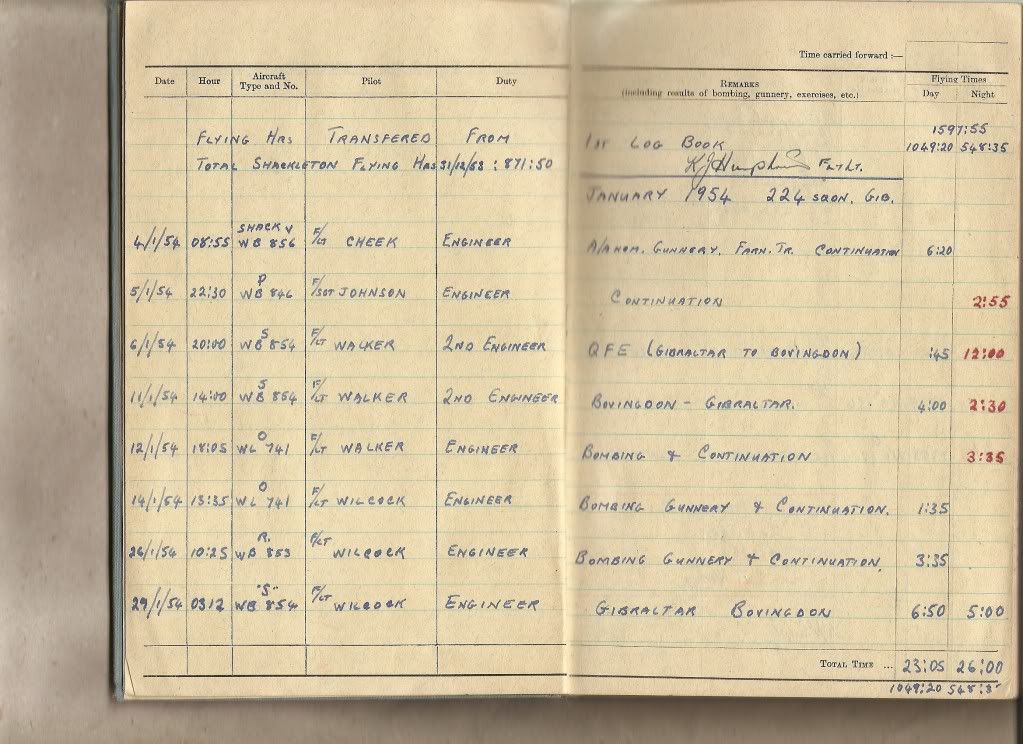 Time carried forward :—
Date Hour Aircraft Type and No. Pilot Duty REMARKS (including results of bombing, gunnery, exercises, etc.) Flying Times Day Night
1597:55
FLYING HRS TRANSFERED FROM 1ST LOG BOOK 1049:20 548:35
TOTAL SHACKLETON FLYING HRS 31/12/53 : 871:50 K J Humphris FLT LT.
JANUARY 1954 224 SQDN. GIB.
4/1/54 08:55 SHACK V WB 856 F/LT CHEEK ENGINEER A/A HOM. GUNNERY. FARN. TR. CONTINUATION 6:20
5/1/54 22:30 P WB 846 F/SGT JOHNSON ENGINEER CONTINUATION 2:55
6/1/54 20:00 S WB 854 F/LT WALKER 2ND ENGINEER QFE (GIBRALTAR TO BOVINGDON) :45 12:00
11/1/54 14:00 S WB 854 F/LT WALKER 2ND ENGINEER BOVINGDON – GIBRALTAR. 4:00 2:30
12/1/54 18:05 O WL 741 F/LT WALKER ENGINEER BOMBING & CONTINUATION 3:35
14/1/54 13:35 O WL 741 F/LT WILCOCK ENGINEER BOMBING GUNNERY & CONTINUATION. 1:35
26/1/54 10:25 R. WB 853 F/LT WILCOCK ENGINEER BOMBING GUNNERY & CONTINUATION. 3:35
29/1/54 0312 "S" WB 854 F/LT WILCOCK ENGINEER GIBRALTAR BOVINGDON 6:50 5:00
TOTAL TIME ... 23:05 26:00
1049:20 548:35